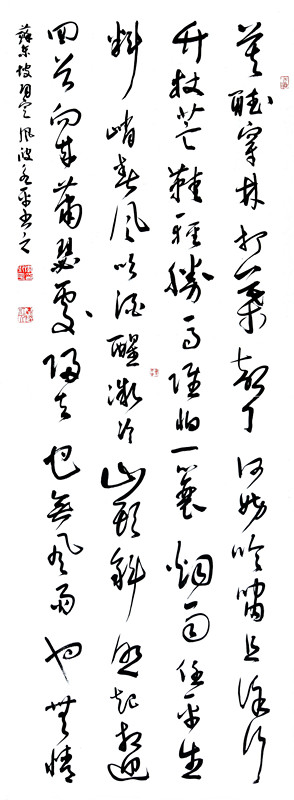 莫聽穿林打葉聲何妨吟嘯且徐行
竹杖芒鞋輕勝馬誰怕一蓑烟雨任平生
料峭春風吹酒醒微冷山頭斜照却相迎
回首向來蕭瑟處歸去也無風雨也無情
蘇東坡定風波平书之